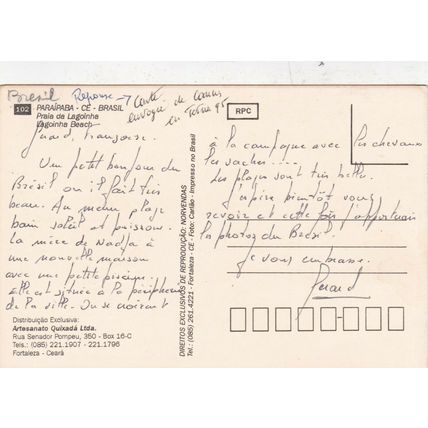 Brésil Réponse → Carte
envoyée de Cannes
en Février 95
102 PARAÍPABA - CE - BRASIL
Praia da Lagoinha
Lagoinha Beach
Gérard, Françoise.
Un petit bonjour du
Brésil où il fait très
beau. Au menu plage
bain soleil et poissons.
La mère de Nadja a
une nouvelle maison
avec une petite piscine.
Elle est située à la périphérie
de la ville. On se croirait
Distribuição Exclusiva:
Artesanato Quixadá Ltda.
Rua Senador Pompeu, 350 - Box 16-C
Tels.: (085) 221.1907 - 221.1796
Fortaleza - Ceará
DIREITOS EXCLUSIVOS DE REPRODUÇÃO: NORVENDAS
Tel.: (085) 261.4221 - Fortaleza - CE - Foto: Carlão - Impresso no Brasil
RPC
à la campagne avec les chevaux
les vaches....
Les plages sont très belles.
J'espère bientôt vous
revoir et cette fois j'apporterai
les photos du Brésil.
Je vous embrasse.
Gérard